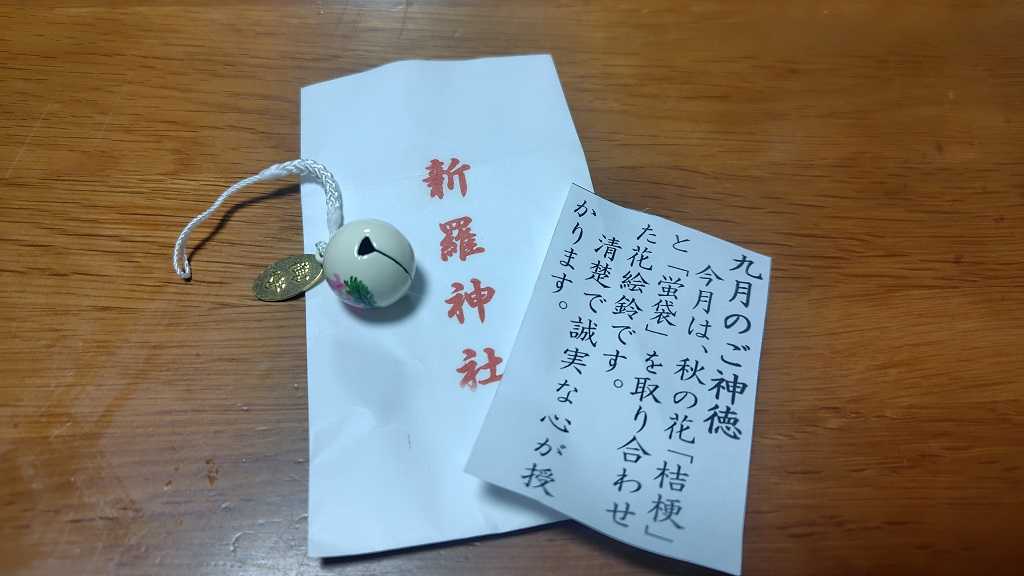 新羅神社
九月のご神徳
今月は、秋の花「桔梗」
と「蛍袋」を取り合わせ
た花絵鈴です。
清楚で誠実な心が授
かります。